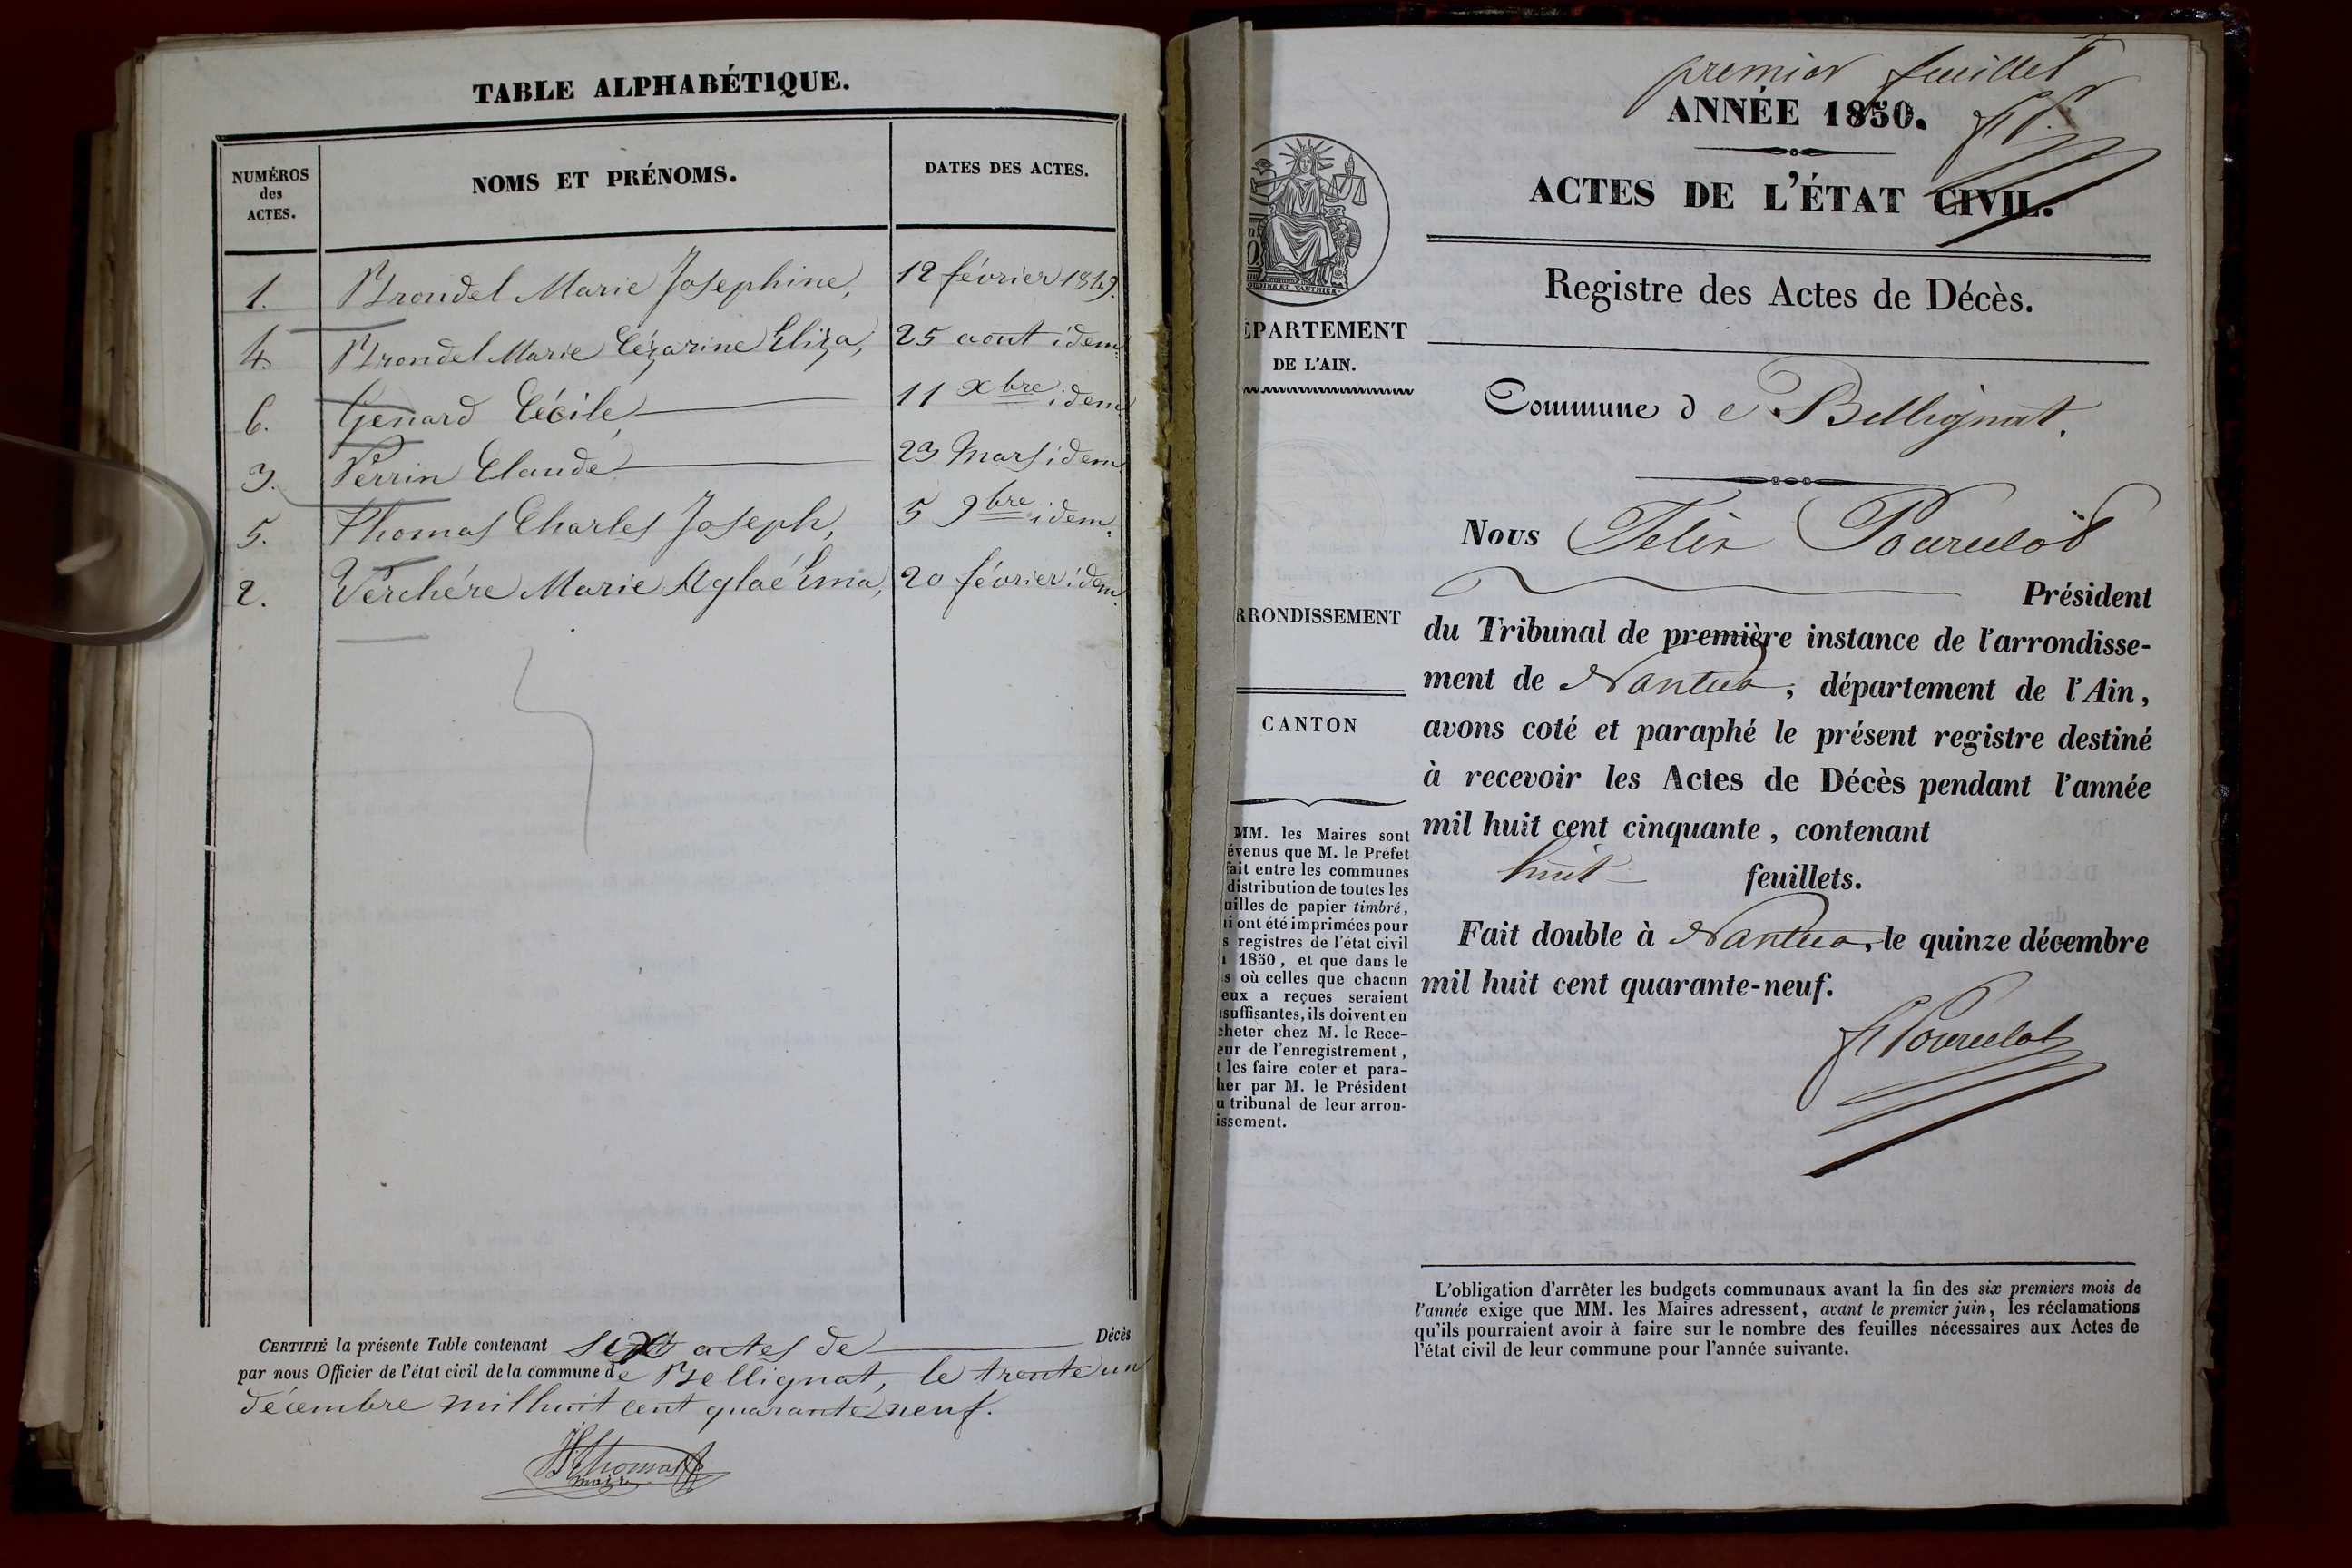 TABLE ALPHABÉTIQUE.
NUMÉROS
des
ACTES.
NOMS ET PRÉNOMS.
DATES DES ACTES.
1. Brondel Marie Josephine, 12 février 1849.
4. Brondel Marie Cézarine Eliza, 25 aout idem
6. Genard Cécile, 11 xbre idem
3. Perrin Claude 23 Mars idem.
5. Thomas Charles Joseph, 5 9bre idem.
2. Verchére Marie Aglaé Ema, 20 février idem.
CERTIFIÉ la présente Table contenant six actes de Décès
par nous Officier de l'état civil de la commune de Bellignat, le trente un
décembre mil huit cent quarante neuf.
Thomas
maire
premier feuillet
ANNÉE 1850.
ACTES DE L'ÉTAT CIVIL.
Registre des Actes de Décès.
ÉPARTEMENT
DE L'AIN.
Commune de Bellignat.
Nous Felix Pourcelot
Président
du Tribunal de première instance de l'arrondisse-
ment de Nantua, département de l'Ain,
avons coté et paraphé le présent registre destiné
à recevoir les Actes de Décès pendant l'année
mil huit cent cinquante, contenant
huit feuillets.
Fait double à Nantua, le quinze décembre
mil huit cent quarante-neuf.
F Pourcelot
RRONDISSEMENT
CANTON
MM. les Maires sont
évenus que M. le Préfet
fait entre les communes
distribution de toutes les
uilles de papier timbré,
i ont été imprimées pour
s registres de l'état civil
1850, et que dans le
s où celles que chacun
eux a reçues seraient
suffisantes, ils doivent en
cheter chez M. le Rece-
eur de l'enregistrement,
t les faire coter et para-
her par M. le Président
u tribunal de leur arron-
issement.
L'obligation d'arrêter les budgets communaux avant la fin des six premiers mois de
l'année exige que MM. les Maires adressent, avant le premier juin, les réclamations
qu'ils pourraient avoir à faire sur le nombre des feuilles nécessaires aux Actes de
l'état civil de leur commune pour l'année suivante.